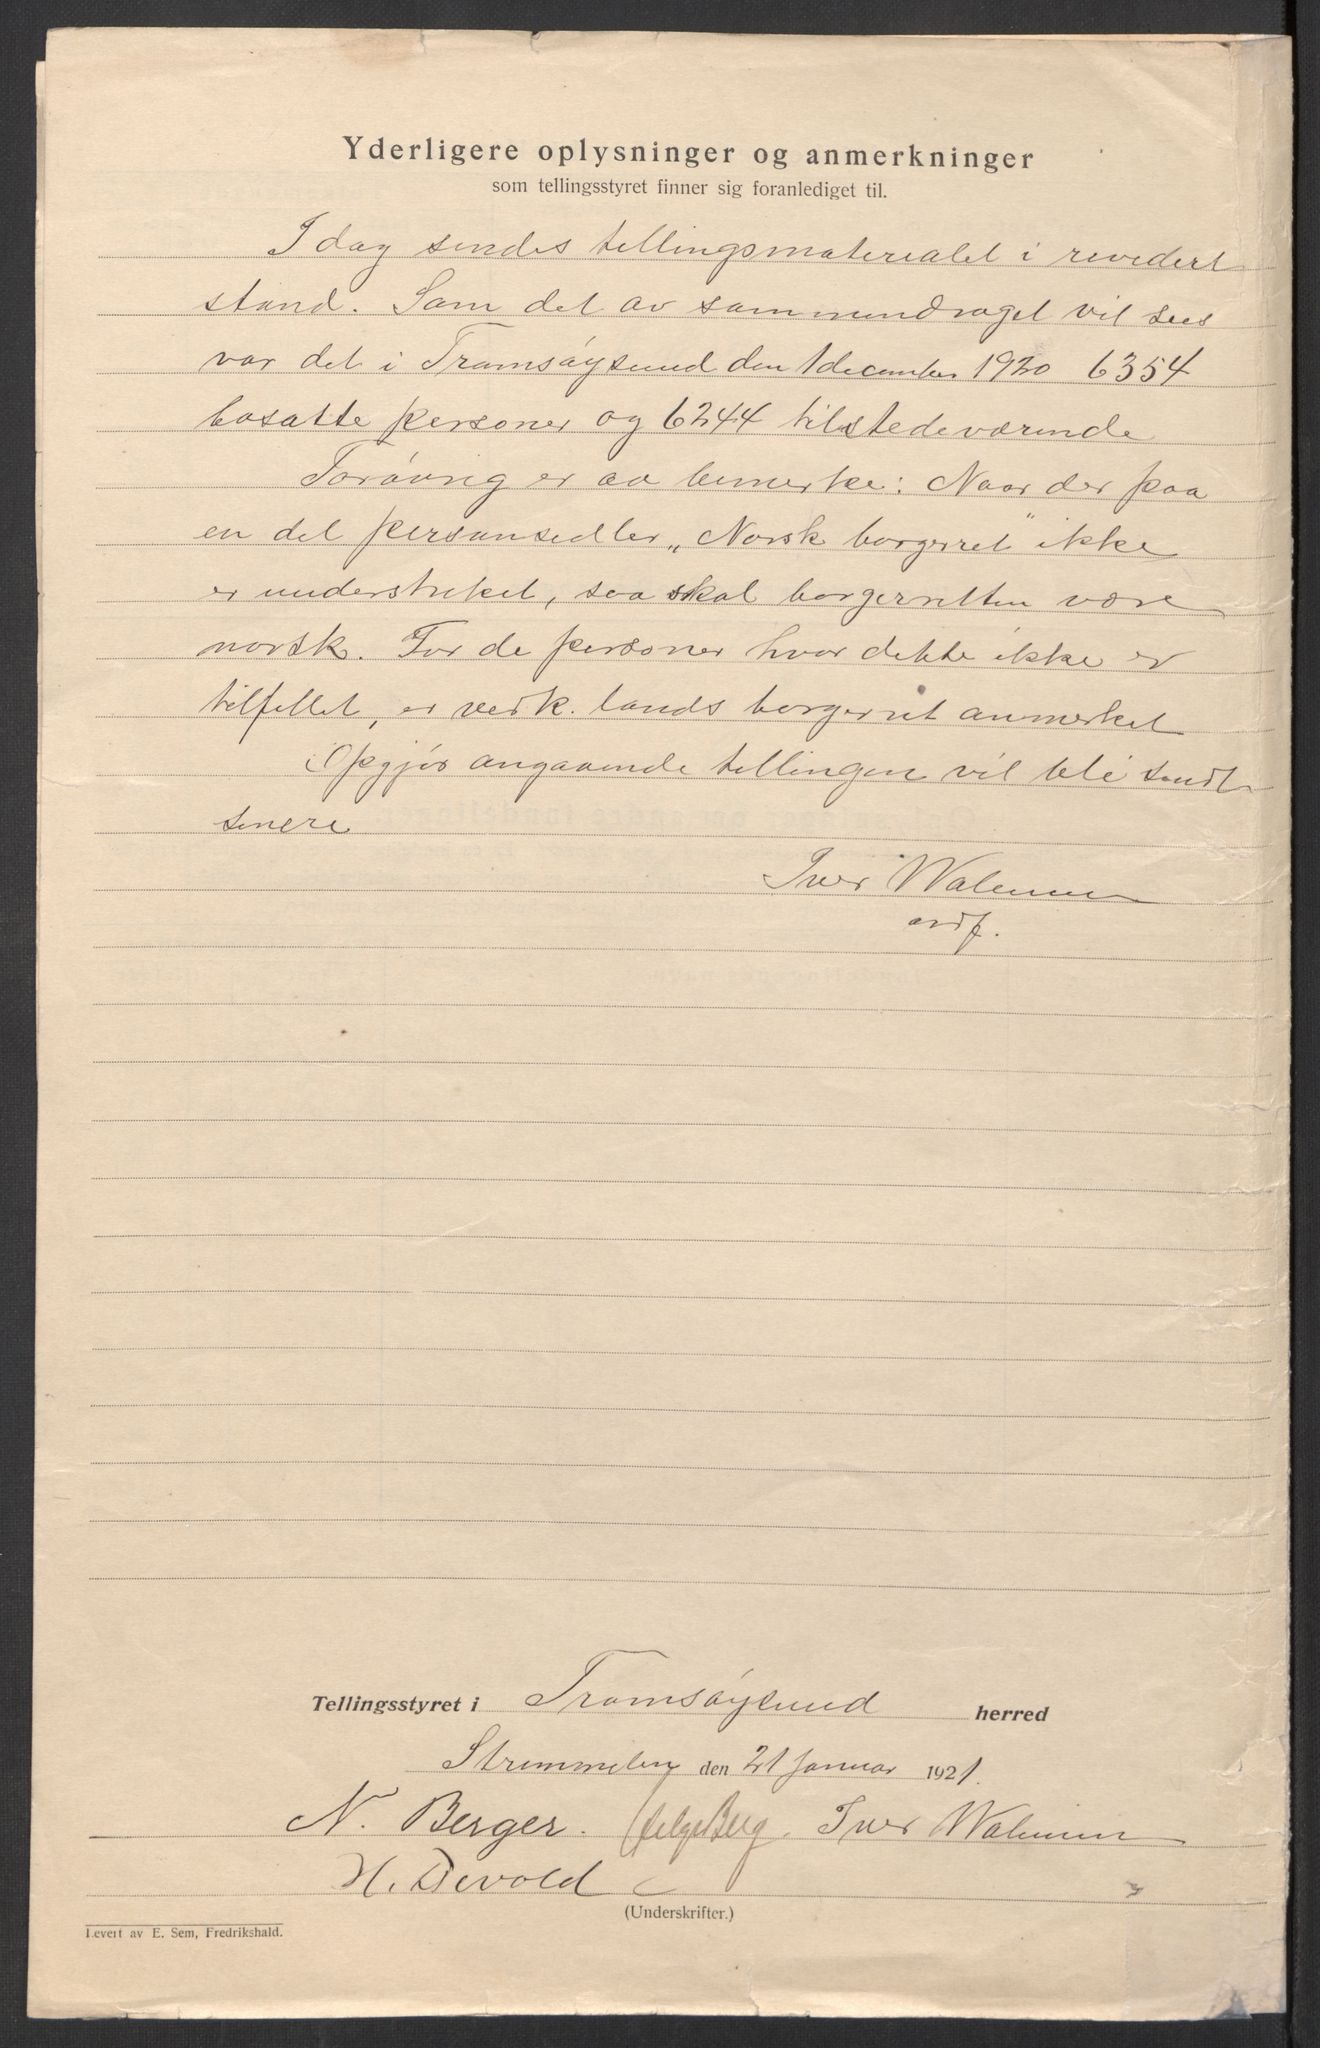 Yderligere oplysninger og anmerkninger
som tellingsstyret finner sig foranlediget til.
I dag sendes tellingsmaterialet i revidert
stand. Som det av sammendraget vil sees
var det i Tromsøysund den 1 december 1920 6354
bosatte personer og 6244 tilstedeværende
Forøvrig er aa bemerke: Naar der paa
en del personsedler „Norsk borgerret" ikke
er understreket, saa skal borgerretten være
norsk. For de personer hvor dette ikke er
tilfellet, er vedk. lands borgerret anmerket
Opgjør angaaende tellingen vil bli sendt
senere
Iver Walnum
ordf.
Tellingsstyret i Tromsøysund herred
den 21 januar 1921.
N. Berger. Helge Berg. Iver Walnum
H. Devold
(Underskrifter.)
Levert av E. Sem, Fredrikshald.